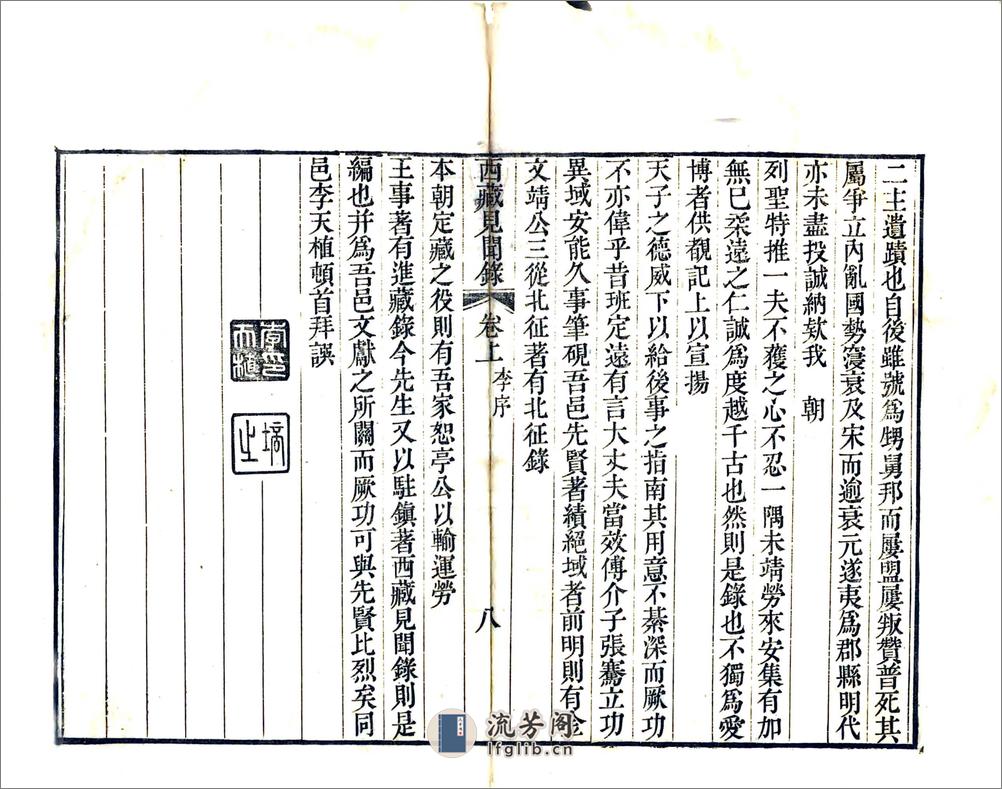 二主遺蹟也自後雖號爲甥舅那而屢盟屢叛贊普死其
屬爭立內亂國勢寖衰及宋而逾衰元遂夷爲郡縣明代
亦未盡投誠納欵我　朝
列聖特推一夫不獲之心不忍一隅未靖勞來安集有加
無已柔遠之仁誠爲度越千古也然則是錄也不獨爲愛
博者供覩記上以宣揚
天子之德威下以給後事之指南其用意不綦深而厥功
不亦偉乎昔班定遠有言大丈夫當效傅介子張騫立功
異域安能久事筆硯吾邑先賢著績絕域者前明則有金
文靖公三從北征著有北征錄
西藏見聞錄　卷上　李序　八
本朝定藏之役則有吾家恕亭公以輸運勞
王事著有進藏錄今先生又以駐鎮著西藏見聞錄則是
編也并爲吾邑文獻之所關而厥功可與先賢比烈矣同
邑李天植頓首拜譔
李印天植
流芳阁
lfglib.cn